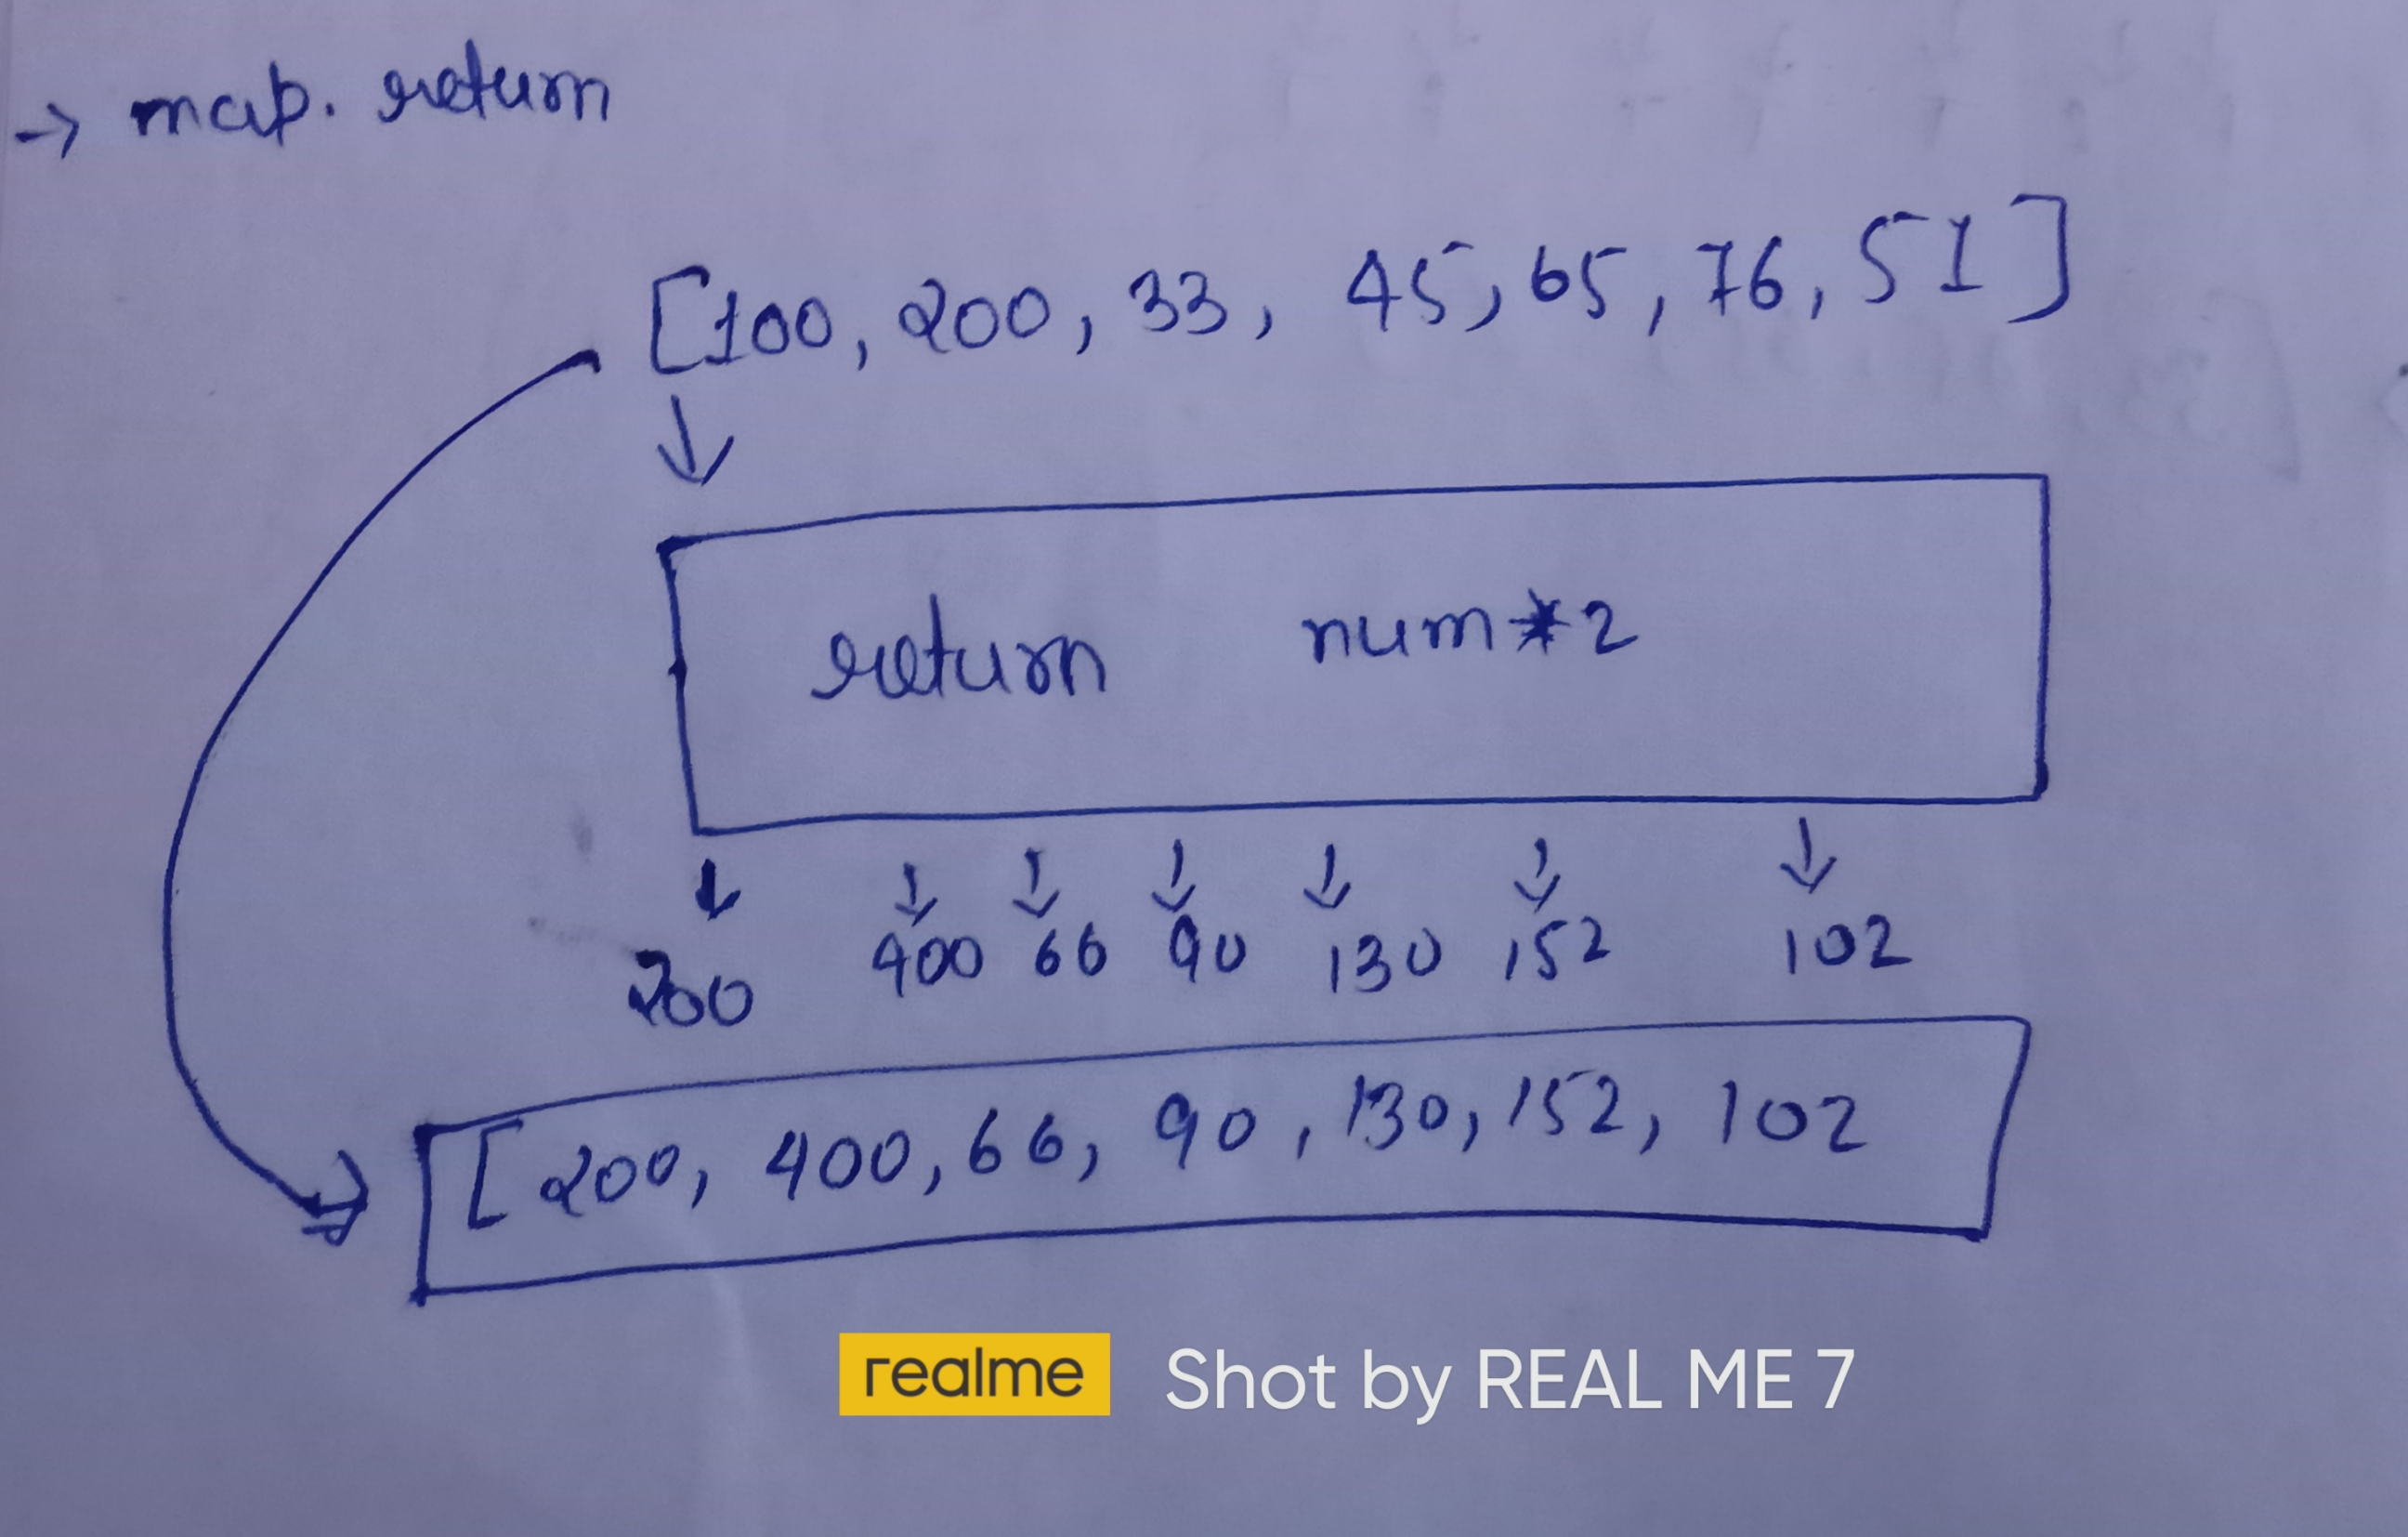 → map. return
[100, 200, 33, 45, 65, 76, 51]
return num*2
200 400 66 90 130 152 102
[200, 400, 66, 90, 130, 152, 102
realme Shot by REAL ME 7